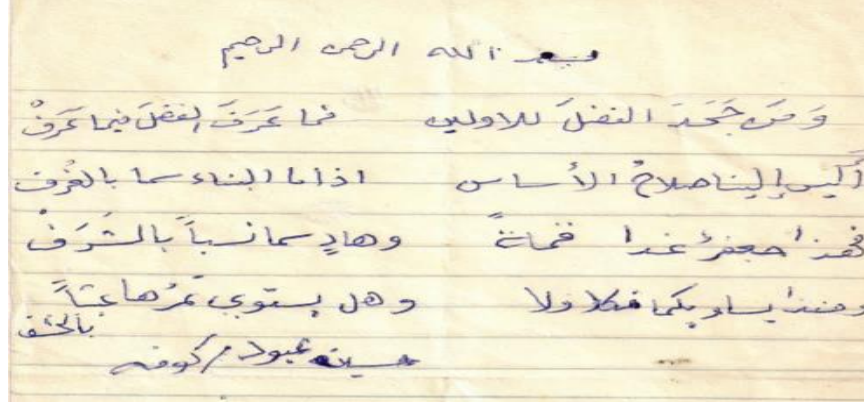 بسم الله الرحمن الرحيم
وَمَن جَحَدَ الفضلَ للاولين فما عَرَفَ الفضلَ فيما عَرَفْ
أليس إلينا صلاحُ الأساس اذا ما البناء سما بالغُرف
فهذا جعفرٌ غدا قمةً وهادٍ سما نسباً بالشَرَفْ
يساويكما فكلا ولا وهل يستوي تمرُها
بالحشف
حسين عبود / كوفه